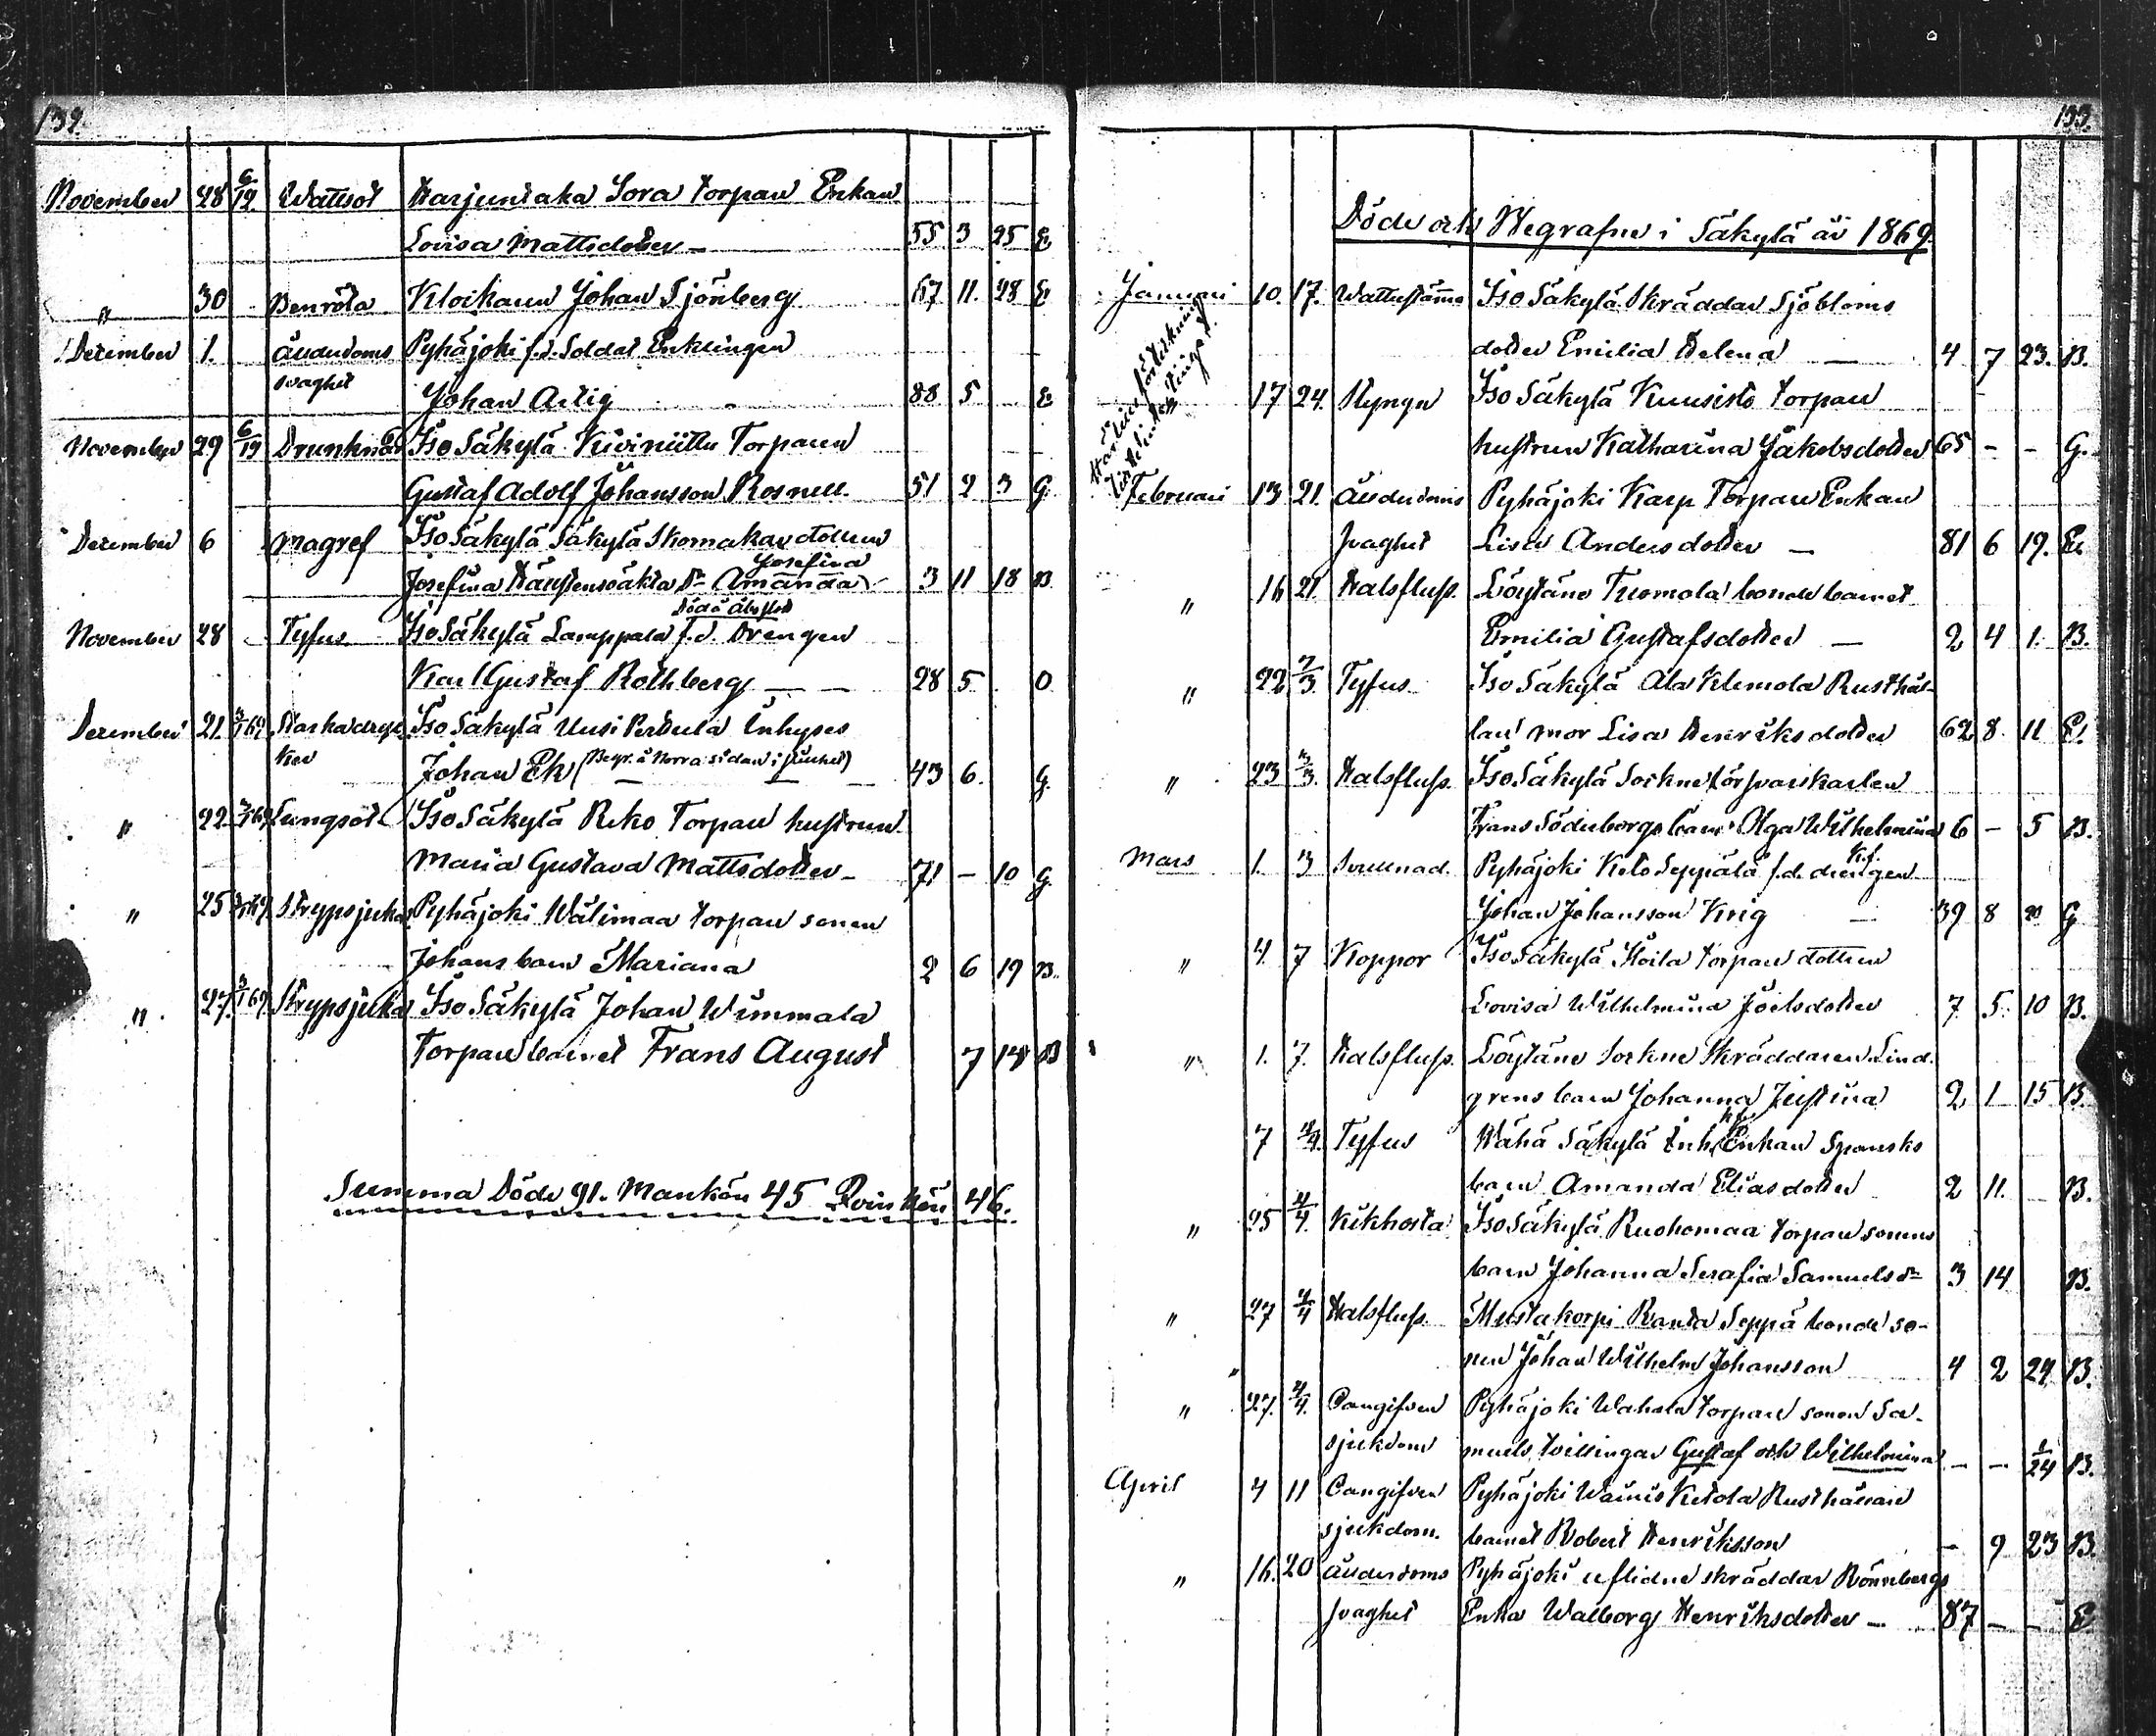 132.
November 28 6/12 Wattsot Harjuntaka Sora torpare Enkan
Lovisa Mattsdotter — 55 3 25 E
" 30 Benröta Klockaren Johan Sjönberg 67 11. 28 E
December 1. Ålderdoms Pyhäjoki f.d. Soldat Enklingen
svaghet Johan Artig 88 5 E
November 29 6/12 Drunknad Iso Säkylä Kiviniittu Torparen
Gustaf Adolf Johansson Rosnell. 51 2 3 G.
December 6 magref Iso Säkylä Säkylä Skomakare dottren
Josefina
Josefina Amanda 3 11 18 B
November 28 Tyfus Iso Säkylä Lamppala f.d. Drengen
Karl Gustaf Rothberg — — 28 5 O
December 21. Iso Säkylä Uusi Perttula Inhyses
Johan Ek (Begr. å Norra sidan i) 43 6. G.
" 22. Lungsot Iso Säkylä Reko Torpare hustrun
Maria Gustava Mattsdotter — 71 — 10 G.
" 25 Strypsjuka Pyhäjoki Wälimaa torpare sonen
Johans barn Mariana 2 6 19 B.
" 27. Strypsjuka Iso Säkylä Johan Wimmala
Torpare barnet Frans August 7 14 B
Summa Döde 91. Mankön 45 Qvinkön 46.
133.
Döde och Begrafne i Säkylä år 1869.
Januari 10. 17. Iso Säkylä Skräddar Sjöbloms
dotter Emilia Helena — 4 7 23. B.
17 24. Iso Säkylä Kuusisto torpare
hustrun Katharina Jakobsdotter 65 - - G.
Februari 13 21. Ålderdoms Pyhäjoki Karp Torpare Enkan
svaghet Lisa Andersdotter — 81 6 19. E.
" 16 21 Halsfluss. Löytäne Tuomola bonde barnet
Emilia Gustafsdotter — 2 4 1. B.
" 22 7/3 Tyfus Iso Säkylä Ala Klemola Rusthål-
lare mor Lisa Henriksdotter 62 8. 11 E.
" 23 Halsfluss. Iso Säkylä Sockne torpvarskarlen
Frans Söderborgs barn Olga Wilhelmina 6 — 5 B.
Mars 1. 3 Pyhäjoki Keto Seppälä f.d. drengen
Johan Johansson Krig — 39 8 G
" 4. 7 Koppor Iso Säkylä torpare dottren
Lovisa Wilhelmina Joelsdotter 7 5. 10 B.
" 1. 7. Halsfluss. Löytäne Sockne Skräddaren Lind-
grens barn Johanna Justina 2 1 15 B.
7 Tyfus Wähä Säkylä Inh. Enkan Spansks
barn Amanda Eliasdotter 2 11. B.
" 25 4/4. Kikhosta Iso Säkylä Ruohomaa torpare sonens
barn Johanna Serafia Samuelsdr 3 14 B.
" 27 4/4 Halsfluss. Mustakorpi Ranta Seppä bonde so-
nen Johan Wilhelm Johansson 4 2 24 B.
" 27. 4/4. Oangifven Pyhäjoki torpare sonen Sa-
sjukdom muels tvillingar Gustaf och Wilhelmina — — 1/24 B.
April 4 11 Oangifven Pyhäjoki Wainio Ketola Rusthållare
sjukdom. barnet Robert Henriksson — 9 23 B.
" 16. 20 Ålderdoms Pyhäjoki aflidne skräddar Rönnbergs
svaghet Enka Walborg Henriksdotter — 87 — — E.